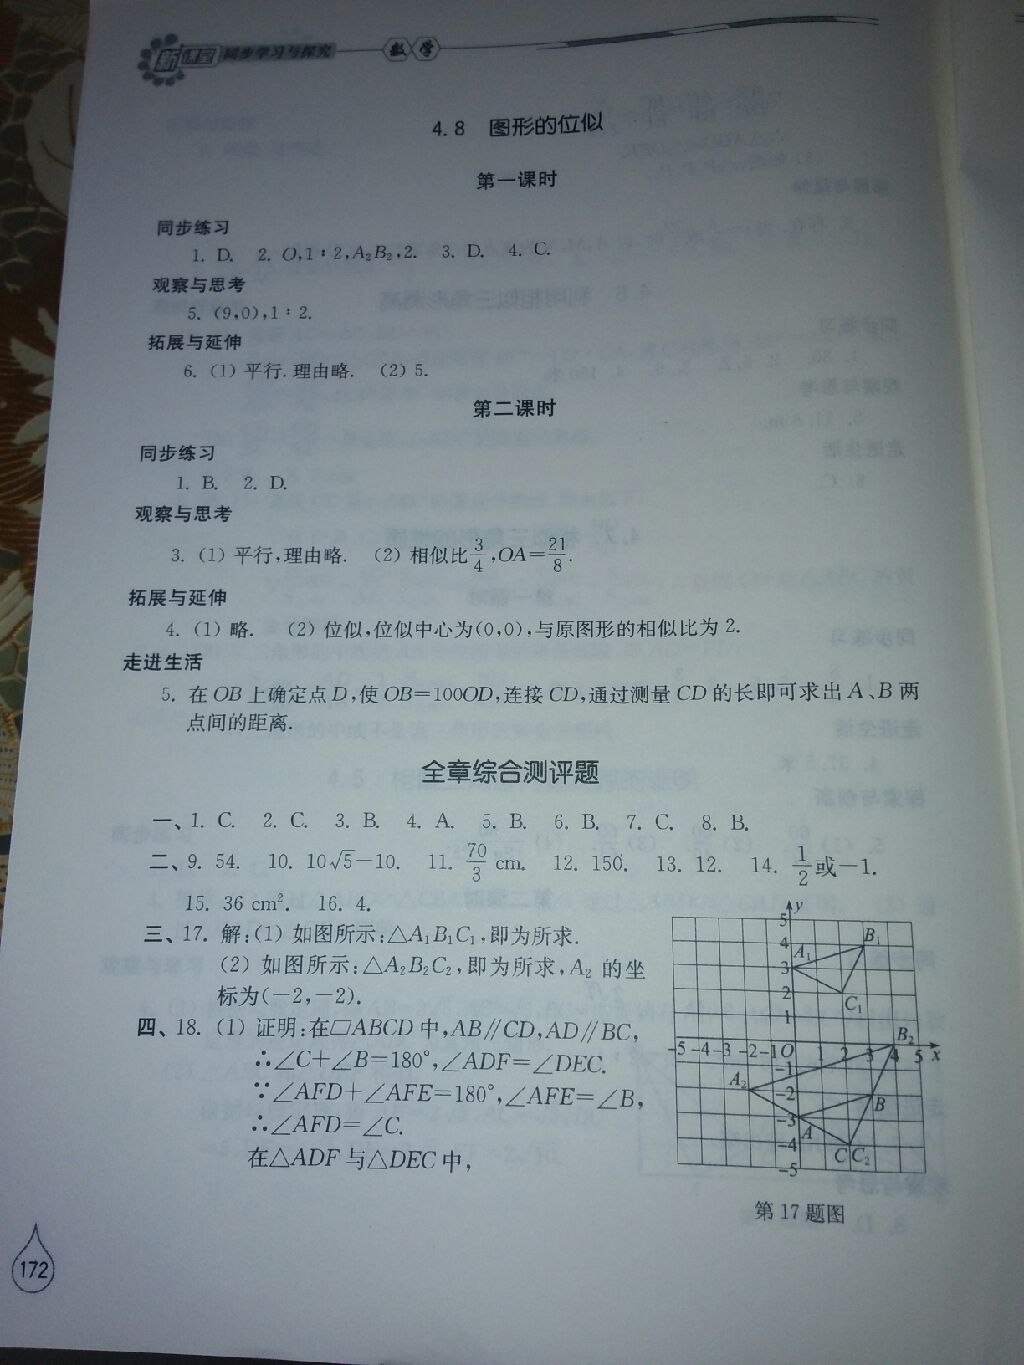 新课堂 同步学习与探究 数学
4.8 图形的位似
第一课时
同步练习
1. D. 2. O,1∶2,A₂B₂,2. 3. D. 4. C.
观察与思考
5. (9,0),1∶2.
拓展与延伸
6. (1) 平行. 理由略. (2) 5.
第二课时
同步练习
1. B. 2. D.
观察与思考
3. (1) 平行,理由略. (2) 相似比 3/4 ,OA= 21/8 .
拓展与延伸
4. (1) 略. (2) 位似,位似中心为(0,0),与原图形的相似比为 2.
走进生活
5. 在 OB 上确定点 D,使 OB=100OD,连接 CD,通过测量 CD 的长即可求出 A、B 两
点间的距离.
全章综合测评题
一、1. C. 2. C. 3. B. 4. A. 5. B. 6. B. 7. C. 8. B.
二、9. 54. 10. 10√5-10. 11. 70/3 cm. 12. 150. 13. 12. 14. 1/2 或-1.
15. 36 cm². 16. 4.
三、17. 解:(1) 如图所示:△A₁B₁C₁,即为所求.
(2) 如图所示:△A₂B₂C₂,即为所求,A₂ 的坐
标为(-2,-2).
四、18. (1) 证明:在▱ABCD 中,AB∥CD,AD∥BC,
∴∠C+∠B=180°,∠ADF=∠DEC.
∵∠AFD+∠AFE=180°,∠AFE=∠B,
∴∠AFD=∠C.
在△ADF 与△DEC 中,
y
5
4
3
2
1
A₁
B₁
C₁
-5 -4 -3 -2 -1 O 1 2 3 4 5 x
B₂
-1
-2
-3
-4
-5
A₂
B
A
C C₂
第 17 题图
172